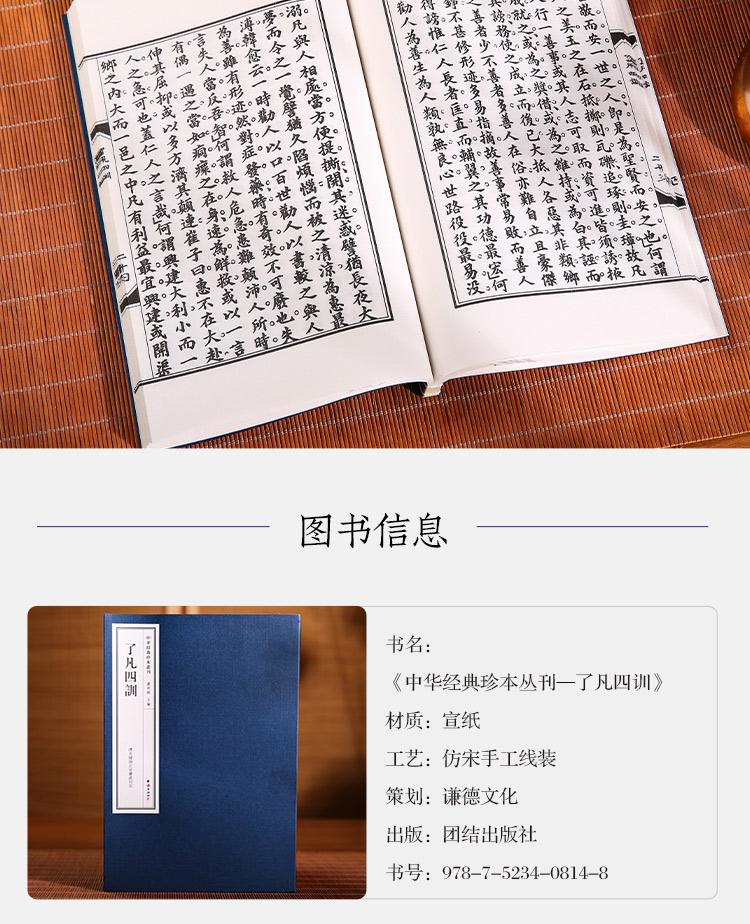 敬而安一世之人。即是為聖賢而安之也。何謂
之美。玉之在石。抵擲則瓦礫。追琢則圭璋。故凡
行一善事。或其人志可取而資可進。皆須誘掖
成就之。或為之獎借。或為之維持。或為白其誣而
其謗。務使之成立而後已。大抵人各惡其非類。鄉
之善者少。不善者多。善人在俗。亦難自立。且豪傑
錚。不甚修形迹。多易指摘。故善事常易敗。而善人
得謗。惟仁人長者。匡直而輔翼之。其功德最宏。何
勸人為善。生為人類。孰無良心。世路役役。最易沒
溺。凡與人相處。當方便提撕。開其迷惑。譬猶長夜大
夢。而令之一覺。譬猶久陷煩惱。而拔之清涼。為惠最
溥。韓愈云。一時勸人以口。百世勸人以書。較之與人
為善。雖有形迹。然對症發藥。時有奇效。不可廢也。失
言失人。當反吾智。何謂救人危急。患難顛沛。人所時
有。偶一遇之。當如痌瘝之在身。速為解救。或以一言
伸其屈抑。或以多方濟其顛連。崔子曰。惠不在大。赴
人之急可也。蓋仁人之言哉。何謂興建大利。小而一
鄉之內。大而一邑之中。凡有利益。最宜興建。或開渠
图书信息
中华經典珍本叢刊
了凡四訓
书名：
《中华经典珍本丛刊—了凡四训》
材质：宣纸
工艺：仿宋手工线装
策划：谦德文化
出版：团结出版社
书号：978-7-5234-0814-8